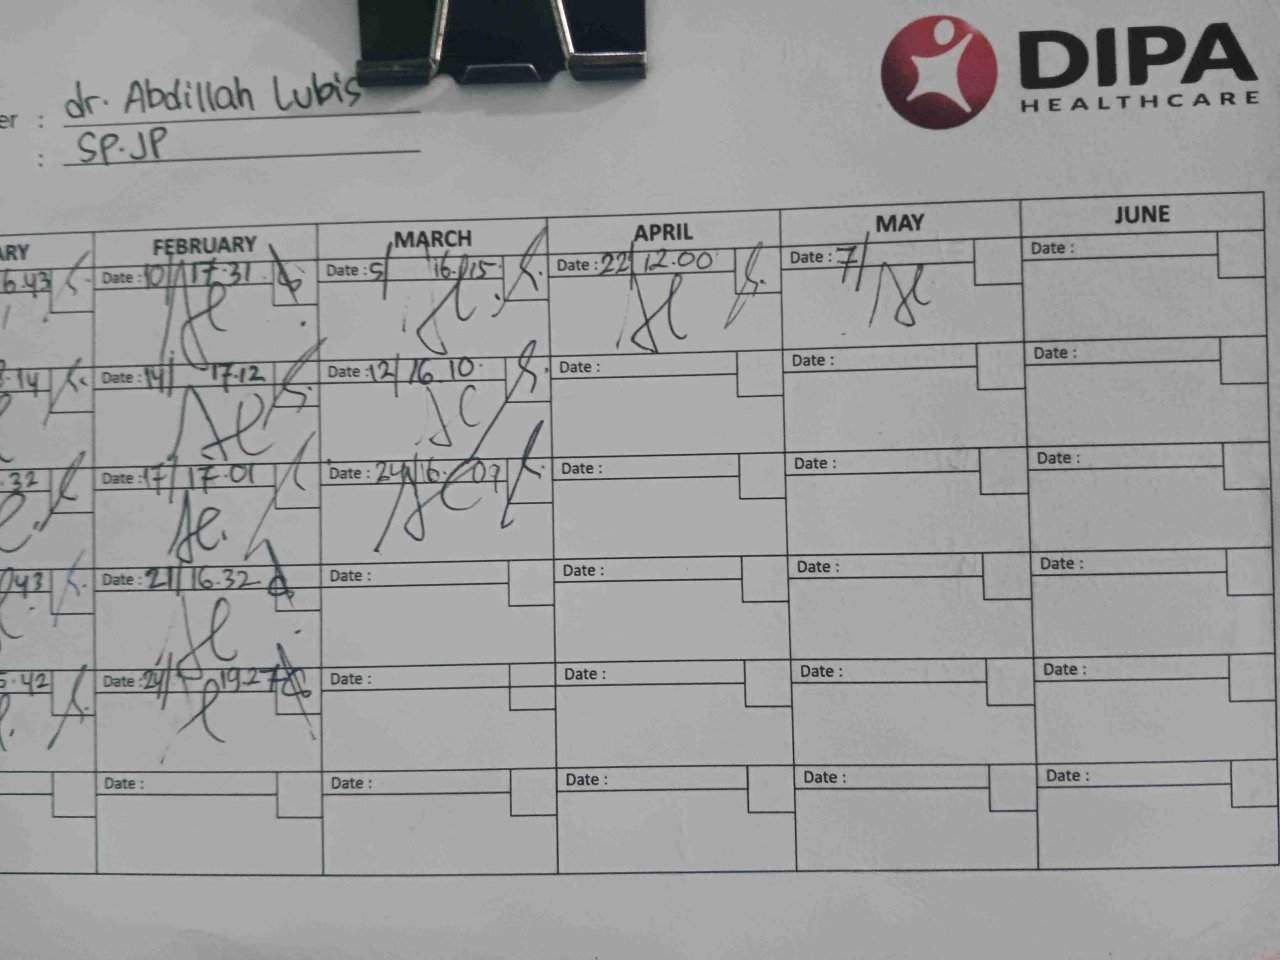 DIPA
HEALTHCARE
er : dr. Abdillah Lubis
: SP.JP
ARY FEBRUARY MARCH APRIL MAY JUNE
6.43 Date : 10/ 17.31 Date : 5/ 16.15 Date : 22/ 12.00 Date : 7/ Date :
.14 Date : 14/ 17.12 Date : 12/ 16.10 Date : Date : Date :
.32 Date : 17/ 17.01 Date : 24/ 16.09 Date : Date : Date :
43 Date : 21/ 16.32 Date : Date : Date : Date :
5.42 Date : 24/ 19.27 Date : Date : Date : Date :
Date : Date : Date : Date : Date :